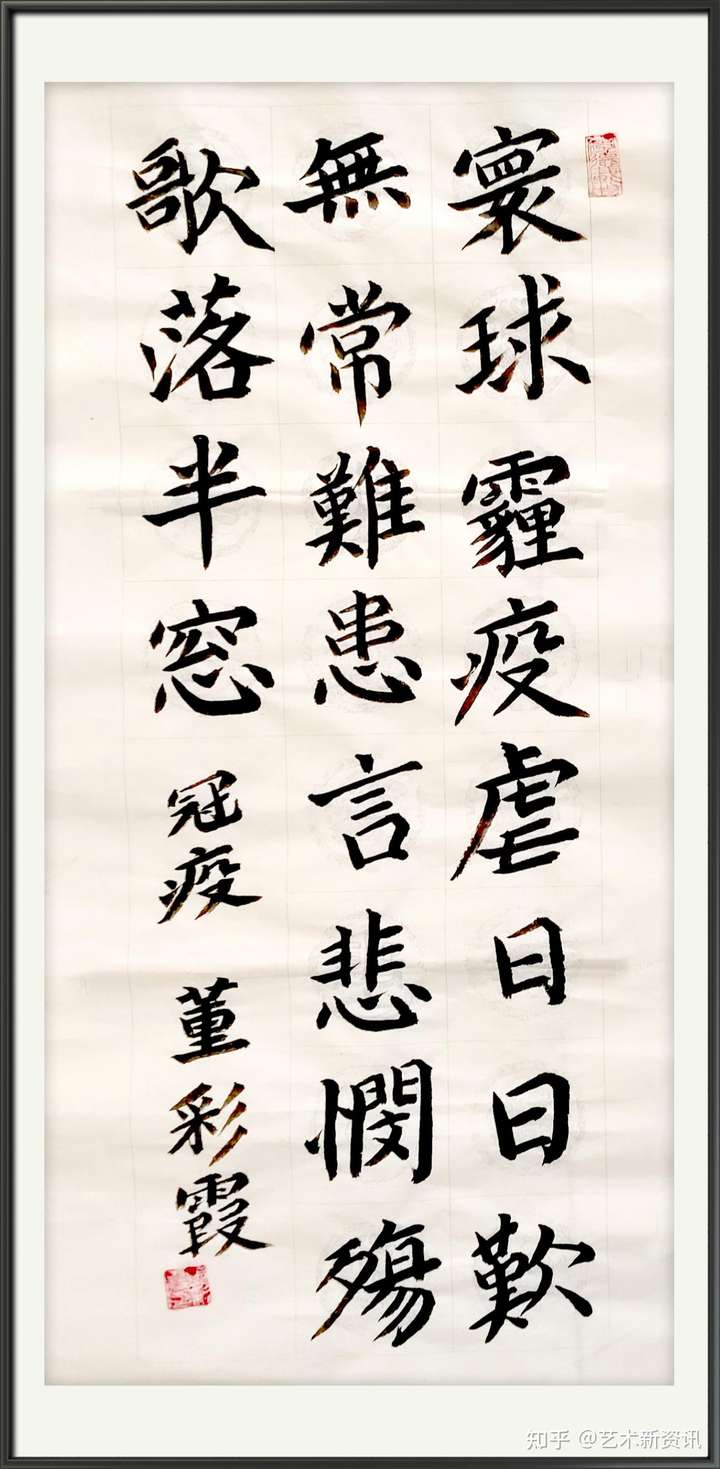 寰球霾疫虐日日歎
無常難患言悲憫殤
歌落半窓
冠疫
董彩霞
知乎 @艺术新资讯